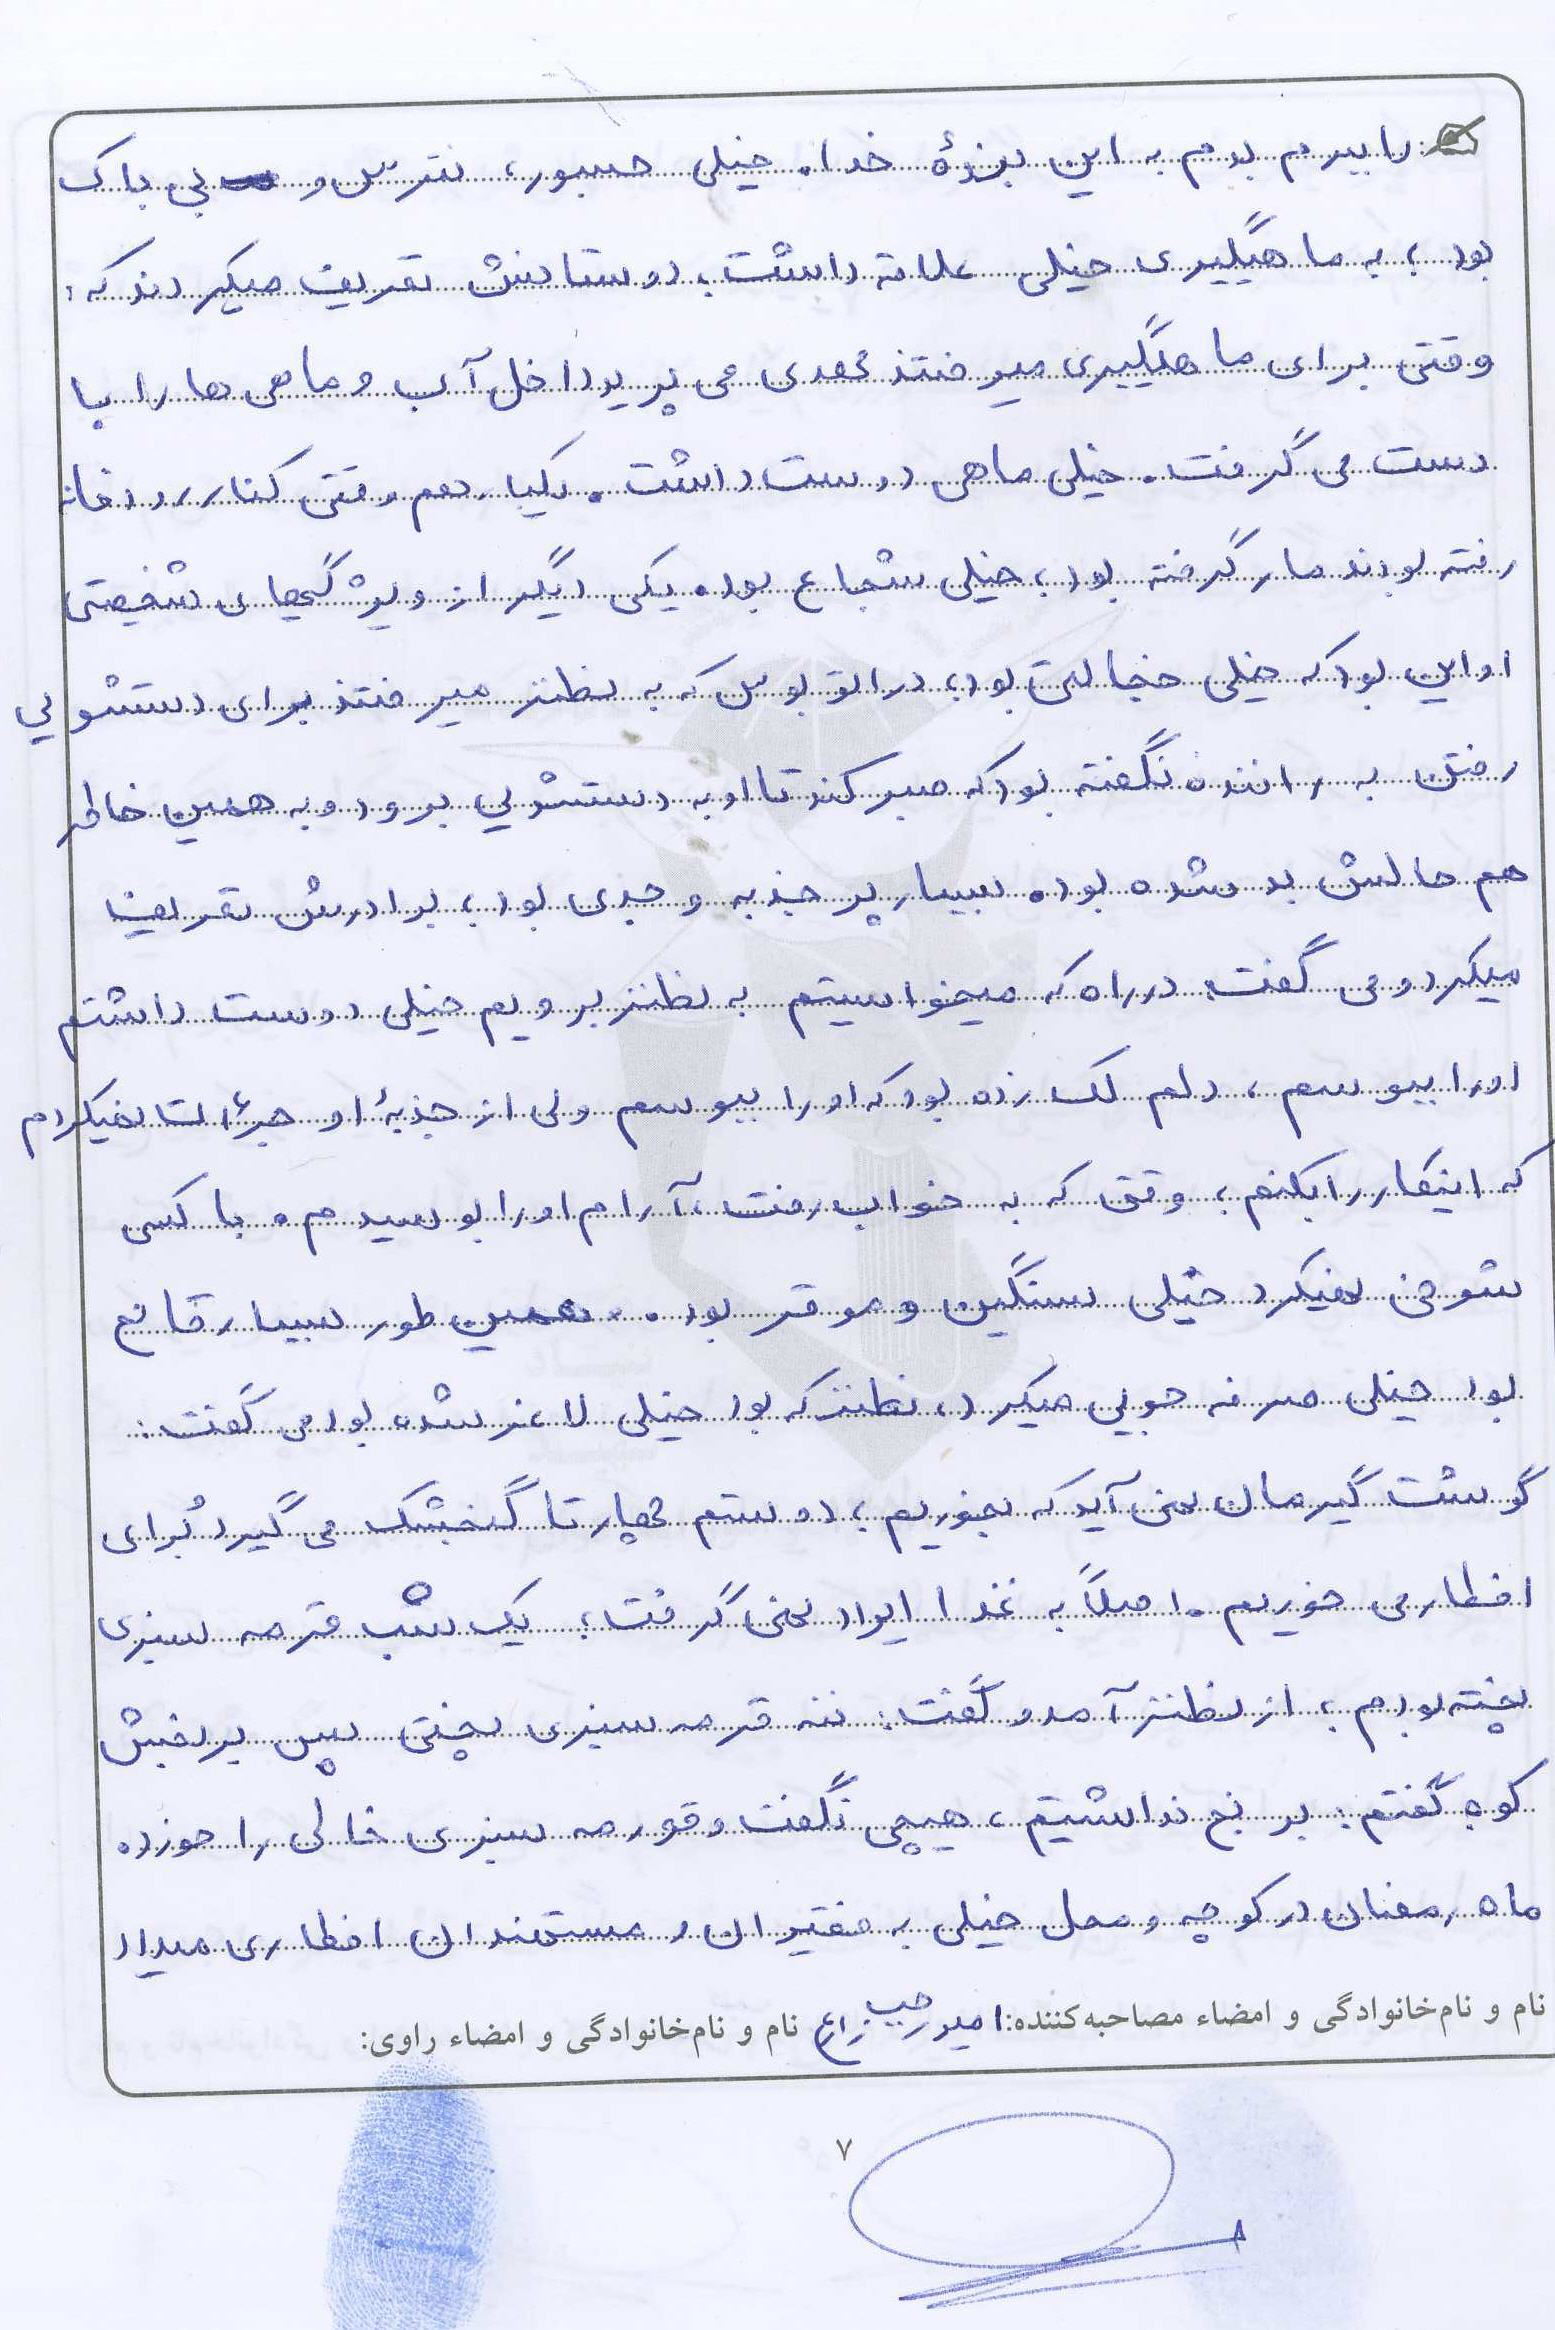 را ببرم بدم به این بندۀ خدا. خیلی جسور، نترس و بی باک
بود؛ به ماهیگیری خیلی علاقه داشت، دوستانش تعریف میکردند که:
وقتی برای ماهیگیری میرفتند مهدی می پرید داخل آب و ماهی ها را با
دست می گرفت. خیلی ماهی دوست داشت. یکبار هم وقتی کنار رودخانه
رفته بودند مار گرفته بود، خیلی شجاع بود. یکی دیگر از ویژگیهای شخصیتی
او این بود که خیلی خجالتی بود؛ در اتوبوس که به نطنز میرفتند برای دستشویی
رفتن به راننده نگفته بود که صبر کند تا او به دستشویی برود و به همین خاطر
هم حالش بد شده بود. بسیار پر جذبه و جدی بود؛ برادرش تعریف
میکرد و می گفت: در راه که میخواستیم به نطنز برویم خیلی دوست داشتم
او را ببوسم، دلم لک زده بود که او را ببوسم ولی از جذبۀ او جرئت نمیکردم
که اینکار را بکنم؛ وقتی که به خواب رفت، آرام او را بوسیدم. با کسی
شوخی نمیکرد خیلی سنگین و موقر بود. همین طور بسیار قانع
بود خیلی صرفه جویی میکرد، نطنز که بود خیلی لاغر شده بود می گفت:
گوشت گیرمان نمی آید که بخوریم؛ دوستم چهار تا گنجشک می گیرد برای
افطار می خوریم. اصلاً به غذا ایراد نمی گرفت؛ یک شب قرمه سبزی
پخته بودم؛ از نطنز آمد و گفت: ننه قرمه سبزی پختی پس برنجش
کو، گفتم: برنج نداشتیم، هیچی نگفت و قورمه سبزی خالی را خورد.
ماه رمضان در کوچه و محل خیلی به فقیران و مستمندان افطاری میداد
نام و نام‌خانوادگی و امضاء مصاحبه‌کننده: امیر رجب نام و نام‌خانوادگی و امضاء راوی:
۷